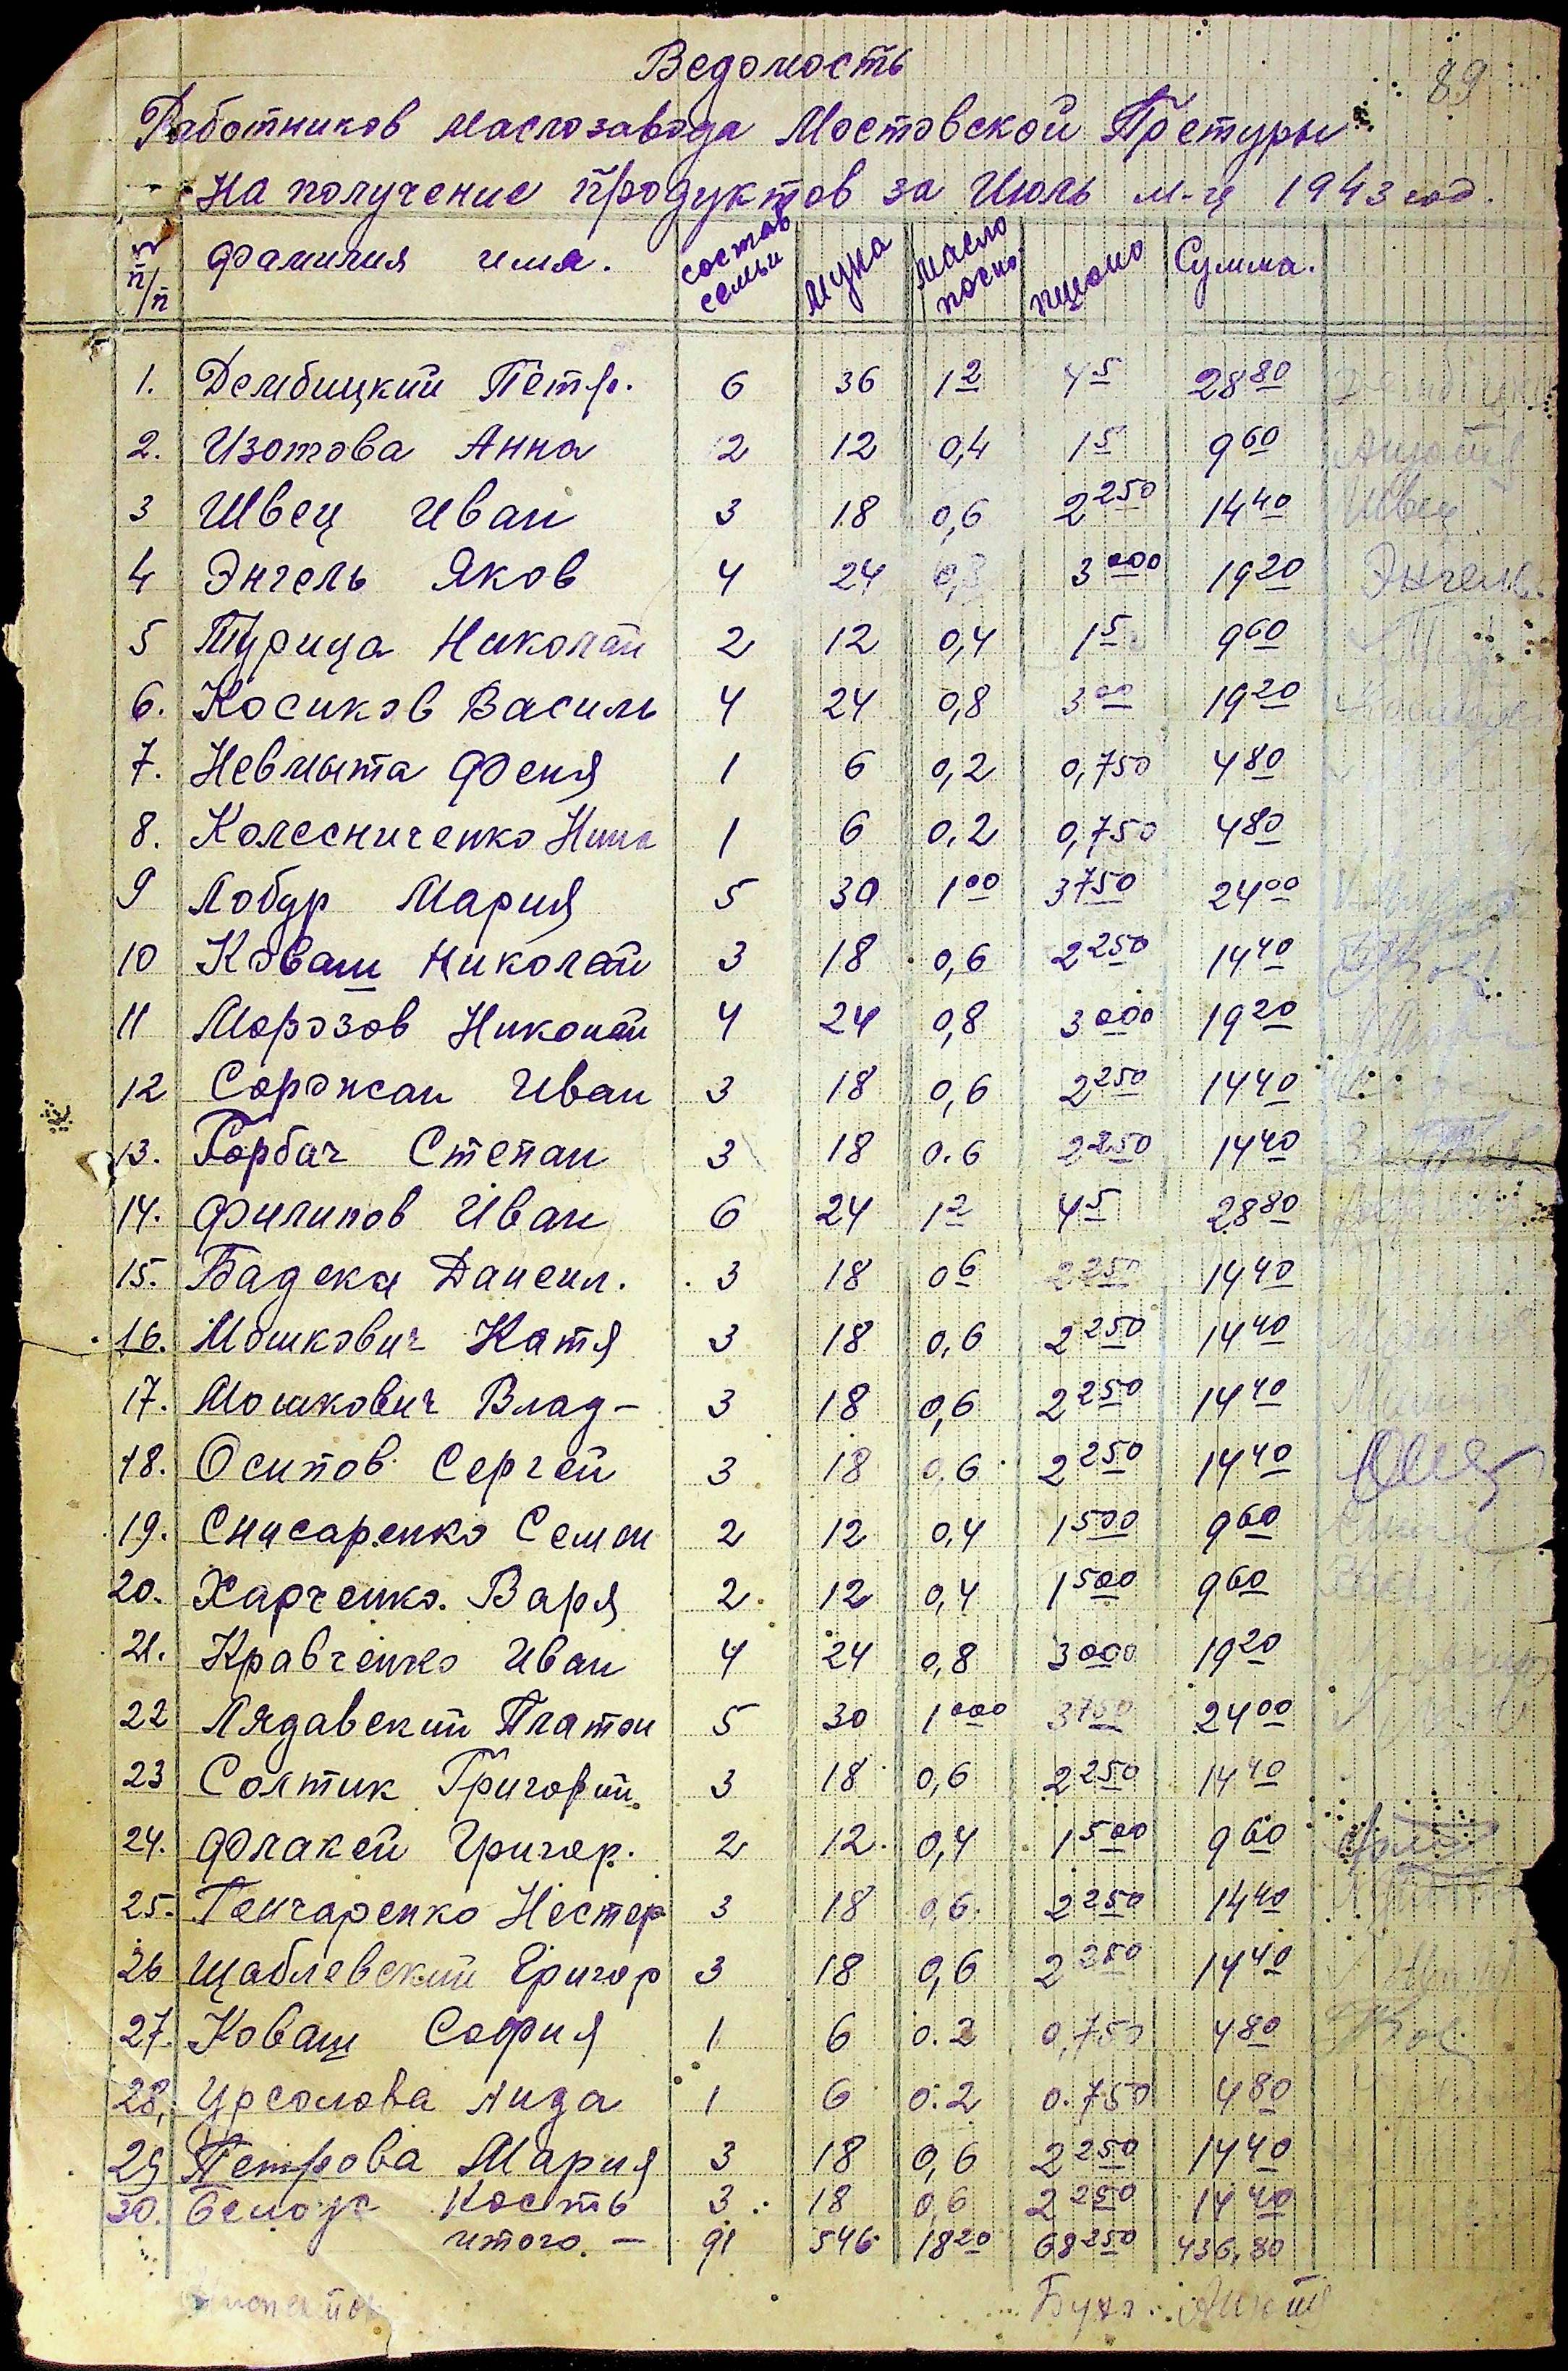 Ведомость
89
Работников маслозавода Мостовской Претуры
На получение продуктов за Июль м-ц 1943 год.
№ п/п фамилия имя. состав семьи мука масло посн. пшено Сумма.
1. Дембицкий Петр. 6 36 1 2 4 5 28 80
2. Изотова Анна 2 12 0,4 1 5 9 60
3 Швец Иван 3 18 0,6 2 250 14 40 Швец
4 Энгель Яков 4 24 0,8 3 000 19 20 Энгель
5 Турица Николай 2 12 0,4 1 5 9 60
6. Косиков Василь 4 24 0,8 3 00 19 20
7. Невмыта Феня 1 6 0,2 0,750 4 80
8. Колесниченко Нина 1 6 0.2 0,750 4 80
9 Лобур Мария 5 30 1 00 3 750 24 00
10 Коваш Николай 3 18 0,6 2 250 14 40
11 Морозов Николай 4 24 0,8 3 000 19 20
12 Сорожан Иван 3 18 0,6 2 250 14 40
13. Горбач Степан 3 18 0.6 2 250 14 40
14. Филипов Иван 6 24 1 2 4 5 28 80
15. Бадека Даисил. 3 18 0 6 2 250 14 40
16. Мошкович Катя 3 18 0,6 2 250 14 40
17. Мошкович Влад- 3 18 0,6 2 250 14 40
18. Осипов Сергей 3 18 0,6 2 250 14 40
19. Снисаренко Семон 2 12 0,4 1 500 9 60
20. Харченко. Варя 2 12 0,4 1 500 9 60
21. Кравченко Иван 4 24 0,8 3 000 19 20
22 Лядавский Платон 5 30 1 000 3 750 24 00
23 Солтик Григорий. 3 18 0,6 2 250 14 40
24. Флакей Григор. 2 12 0,4 1 500 9 60
25. Гончаренко Нестер 3 18 0,6 2 250 14 40
26 Щаблевский Григор 3 18 0,6 2 250 14 40
27. Коваш София 1 6 0.2 0,750 4 80
28. Урсолова Лида 1 6 0.2 0.750 4 80
29 Петрова Мария 3 18 0,6 2 250 14 40
30. Белоус Кость 3 18 0,6 2 250 14 40
итого. — 91 546 18 20 68 250 436,80
Бухг.